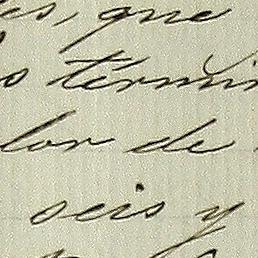 es, que
o térmi
lor de
seis y